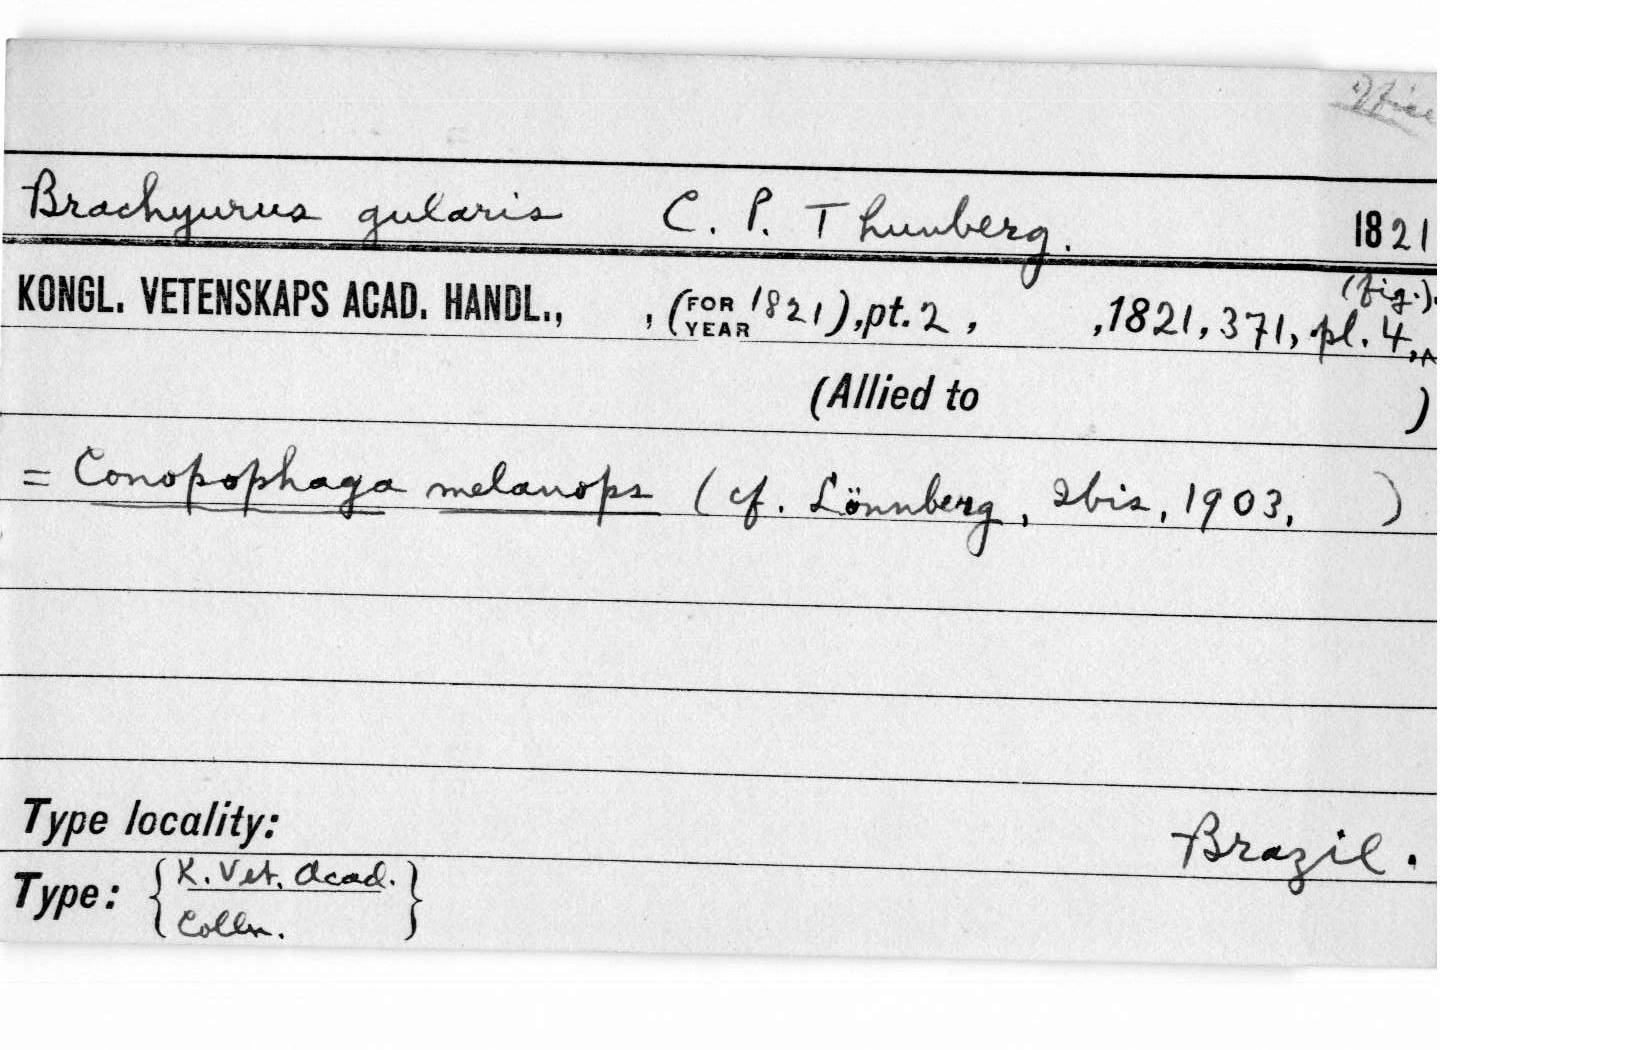 Brachyurus gularis C. P. Thunberg. 1821
(fig.).
KONGL. VETENSKAPS ACAD. HANDL., , (FOR YEAR 1821), pt. 2 , ,1821, 371, pl. 4,
(Allied to )
= Conopophaga melanops (cf. Lönnberg, Ibis, 1903, )
Type locality: Brazil.
Type: { K. Vet. Acad. }
Colln.